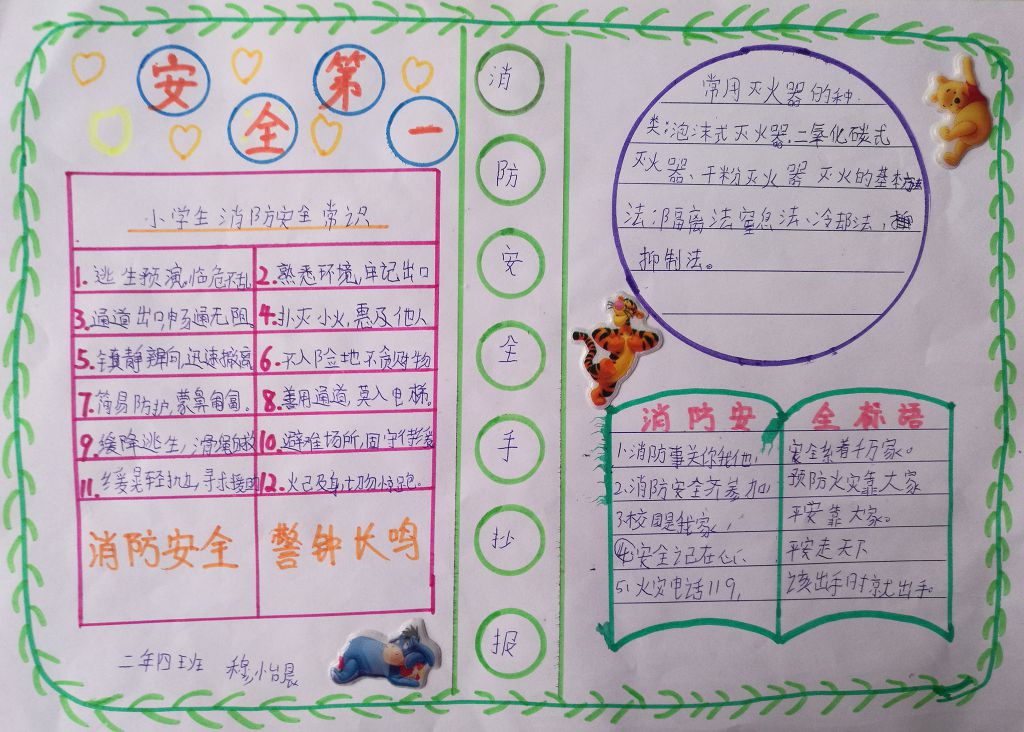 安全第一
小学生消防安全常识
1.逃生预演,临危不乱
2.熟悉环境,牢记出口
3.通道出口,畅通无阻.
4.扑灭小火,惠及他人
5.镇静辨向,迅速撤离
6.不入险地不贪财物
7.简易防护,蒙鼻匍匐。
8.善用通道,莫入电梯。
9.缓降逃生,滑绳自救
10.避难场所,固守待援
11.缓晃轻抛,寻求援助
12.火已及身,切勿惊跑。
消防安全
警钟长鸣
二年四班 穆怡晨
消防安全手抄报
常用灭火器的种
类:泡沫式灭火器.二氧化碳式
灭火器、干粉灭火器 灭火的基本方法
法:隔离法窒息法、冷却法,
抑制法。
消防安全标语
1.消防事关你我他,安全系着千万家。
2.消防安全齐参加,预防火灾靠大家
3.校园是我家,平安靠大家。
4.安全记在心、平安走天下
5.火灾电话119,该出手时就出手。